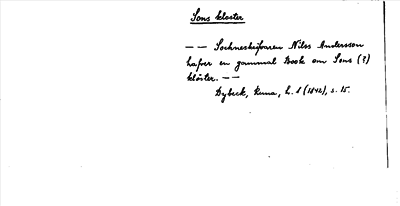 Sons kloster
— — Sochneskrifvaren Nilss Andersson
hafver en gammal Book om Sons (?)
klöster. — —
Dybeck, Runa, h. 1 (1842), s. 15.